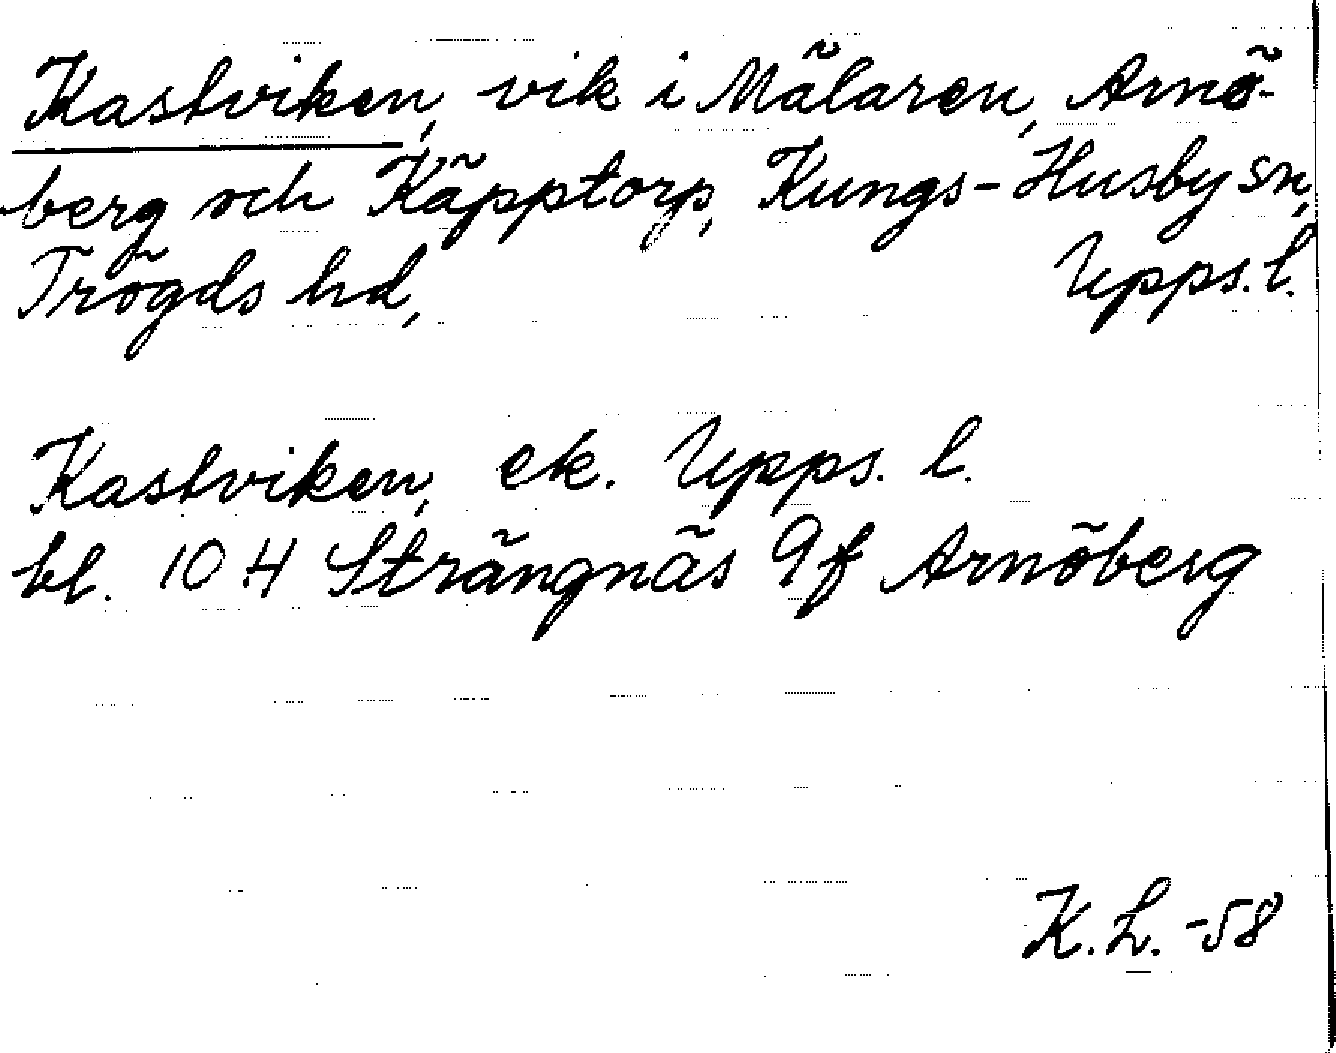 Kastviken, vik i Mälaren, Arnö-
berg och Käpptorp, Kungs-Husby sn,
Trögds hd, Upps. l.
Kastviken, ek. Upps. l.
bl. 10 H Strängnäs 9f Arnöberg
K.L. -58